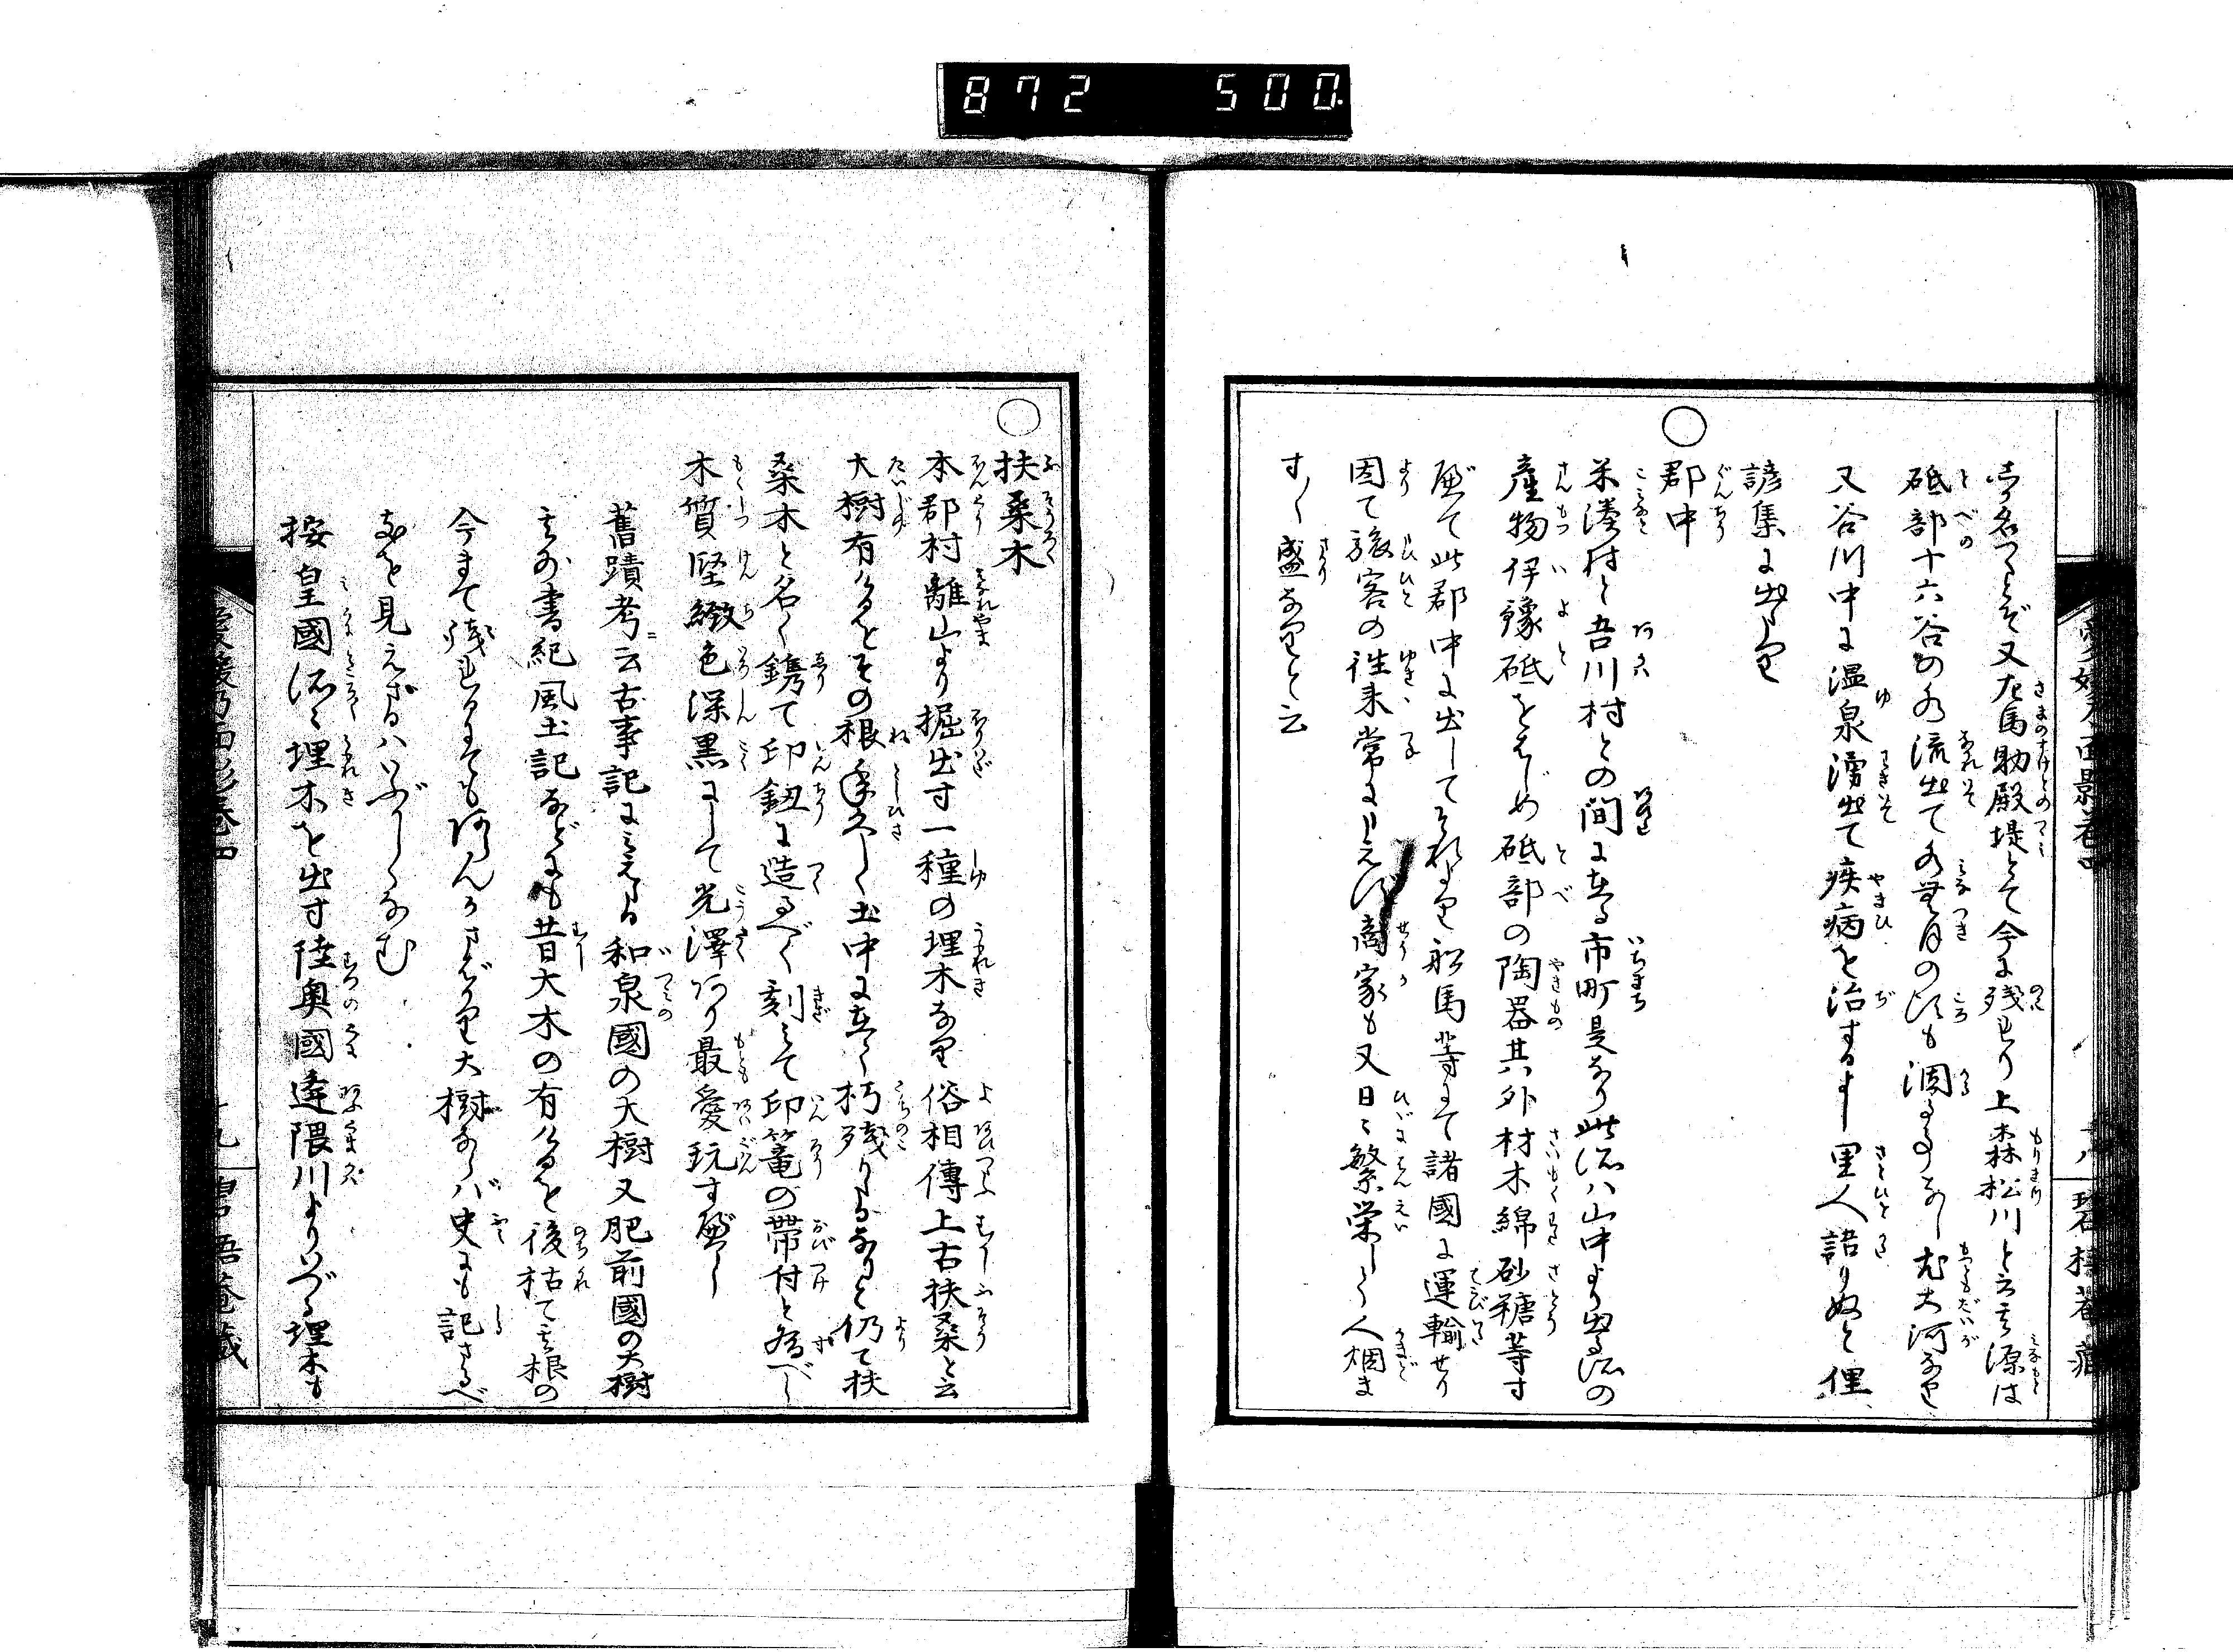 872 500
しか名つくとぞ又左馬助殿堤とて今に残れり上森松川と云其源は
砥部十六谷の水流出て水無月の頃も涸るゝ事なし尤大河なり
又谷川中に温泉湧出て疾病を治するよし里人語りぬと俚
諺集に出たり
○郡中
米湊村と吾川村との間に在る市町是なり此泒ハ山中より出る泒の
産物伊豫砥をはじめ砥部の陶器其外材木綿砂糖等す
べて此郡中に出してそれより船馬等にて諸國に運輸せり
因て旅客の往来常にたえず商家も又日々繁栄し人烟ま
す〱盛なりと云
○扶桑木
本郡村離山より掘出す一種の埋木なり俗相傳上古扶桑と云
大樹有けるとその根年久しく土中に在て朽残りたるなりと仍て扶
桑木と名く鐫て印鈕に造るべく刻みて印篭の帯付と為べし
木質堅緻色深黒にして光澤あり最愛玩すべし
舊蹟考ニ云古事記にみえたる和泉國の大樹又肥前國の大樹
其外書紀風土記などにも昔大木の有けるを後枯て其根の
今まて残れるにてもあらんかさばかり大樹ならバ史にも記さるべ
きを見えざるハいぶかしくなむ
按皇國所々埋木を出す陸奥國逢隈川よりいづる埋木も
愛媛乃面影巻四
十八
碧梧菴蔵
愛媛乃面影巻四
十九
碧梧菴蔵